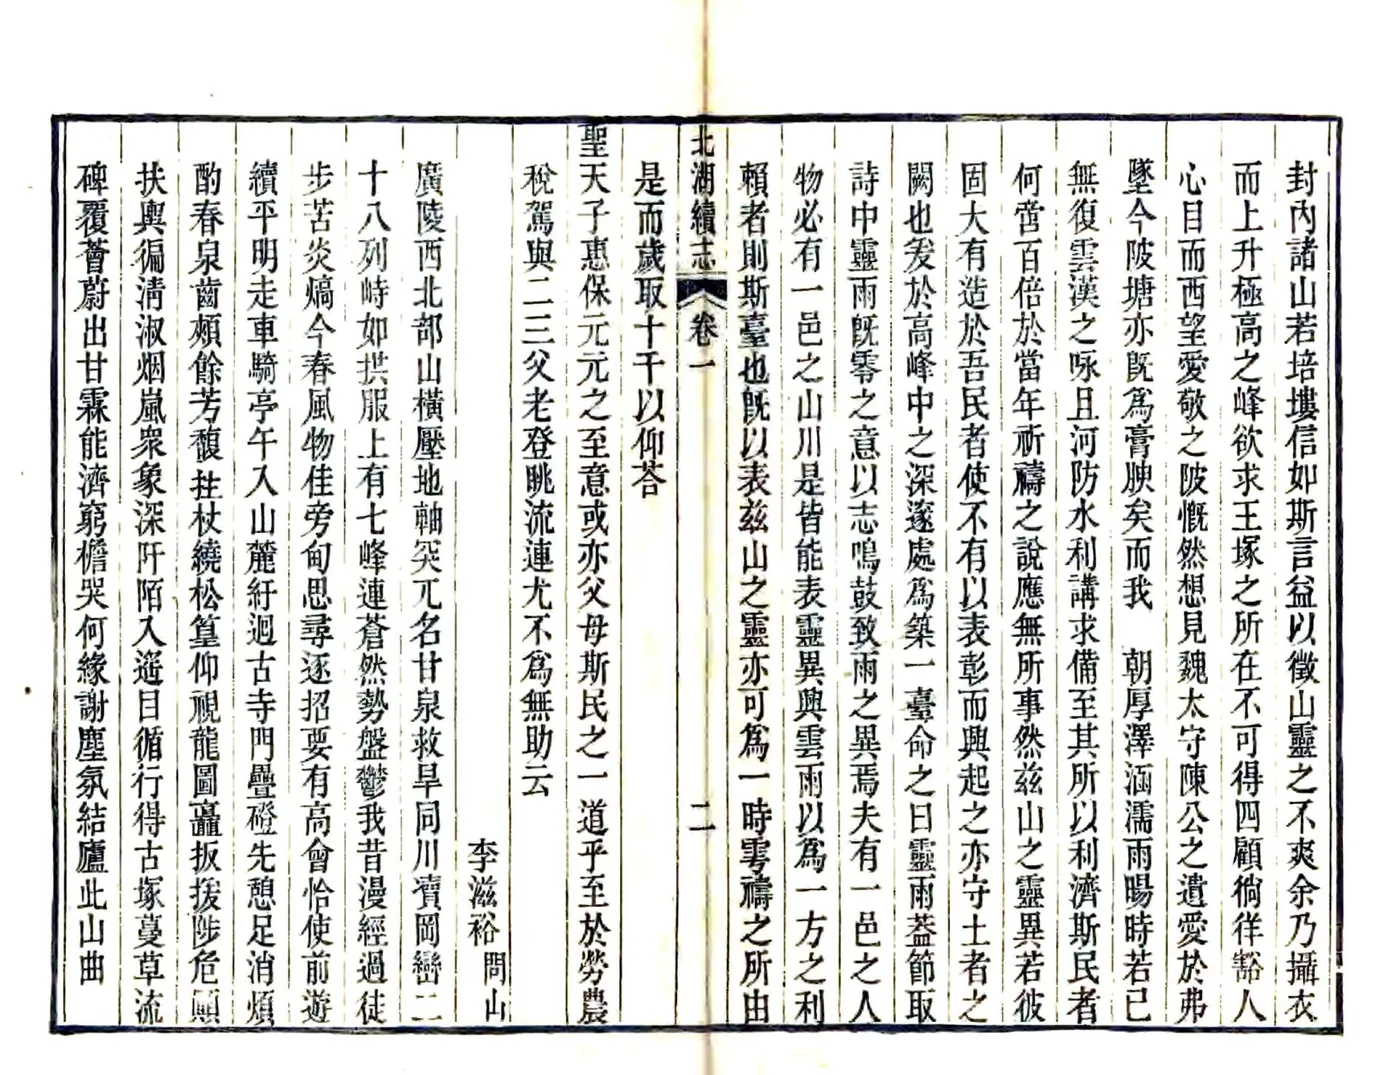 封內諸山若培塿信如斯言益以徵山靈之不爽余乃攝衣
而上升極高之峰欲求王塚之所在不可得四顧徜徉豁人
心目而西望愛敬之陂慨然想見魏太守陳公之遺愛於弗
墜今陂塘亦旣為膏腴矣而我 朝厚澤涵濡雨暘時若已
無復雲漢之咏且河防水利講求備至其所以利濟斯民者
何啻百倍於當年祈禱之說應無所事然茲山之靈異若彼
固大有造於吾民者使不有以表彰而興起之亦守土者之
闕也爰於高峰中之深邃處為築一臺命之曰靈雨蓋節取
詩中靈雨旣零之意以志鳴鼓致雨之異焉夫有一邑之人
物必有一邑之山川是皆能表靈異興雲雨以為一方之利
賴者則斯臺也旣以表茲山之靈亦可為一時雩禱之所由
北湖續志 卷一 二
是而歲取十千以仰荅
聖天子惠保元元之至意或亦父母斯民之一道乎至於勞農
稅駕與二三父老登眺流連尤不為無助云
李滋裕 問山
廣陵西北部山橫壓地軸突兀名甘泉救旱同川瀆岡巒二
十八列峙如拱服上有七峰連蒼然勢盤鬱我昔漫經過徒
步苦炎熇今春風物佳旁甸思尋逐招要有高會恰使前遊
續平明走車騎亭午入山麓紆迴古寺門疊磴先憩足消煩
酌春泉齒頰餘芳馥拄杖繞松篁仰視龍圖矗扳援陟危顚
扶輿徧淸淑烟嵐衆象深阡陌入遥目循行得古塚蔓草流
碑覆薈蔚出甘霖能濟窮檐哭何緣謝塵氛結廬此山曲